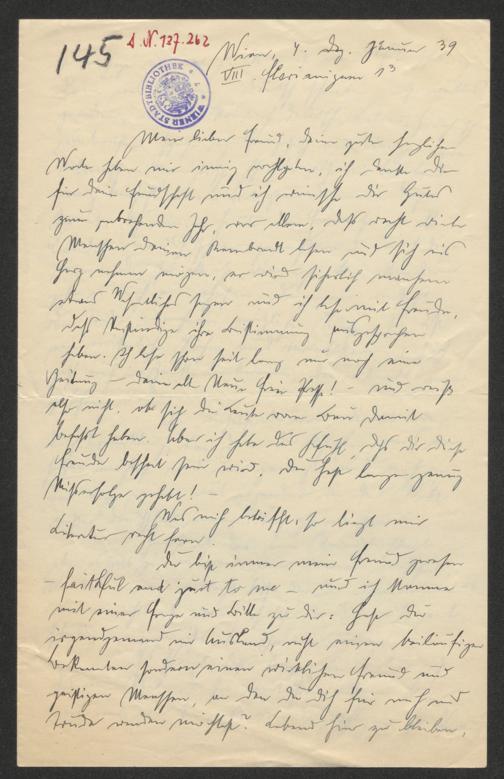 145
A.N. 127.262
WIENER STADTBIBLIOTHEK
Wien, 4. Januar 39
VIII. Florianigasse 13
Mein lieber Freund, deine guten herzlichen
Worte haben mir innig wohlgetan, ich danke dir
für deine Freundschaft und ich wünsche dir Gutes
zum Jahr, vor allem, dass recht viele
Menschen deinen Rembrandt lesen und sich ins
Herz nehmen mögen, er wird sicherlich manchem
etwas Wesentliches sagen und ich lese mit Freude,
dass Verständige ihre Zustimmung ausgesprochen
haben. Ich lese schon seit lang nur noch eine
Zeitung – dein alt Neue Freie Presse! – und weiß
also nicht, ob sich die Leute vom Bau damit
befasst haben. Aber ich habe das Gefühl, dass dir diese
Freude beschert sein wird, du hast lange genug
Misserfolge gehabt! –
Was mich betrifft, so liegt mir
Literatur recht fern.
Du bist immer mein Freund gewesen
– faithful and just to me – und ich komme
mit einer Frage und Bitte zu dir: Hast du
irgendjemand im Ausland, nicht einen beiläufigen
Bekannten sondern einen wirklichen Freund und
geistigen Menschen, an den du dich für mich und
Trude wenden möchtest? Lebend hier zu bleiben,